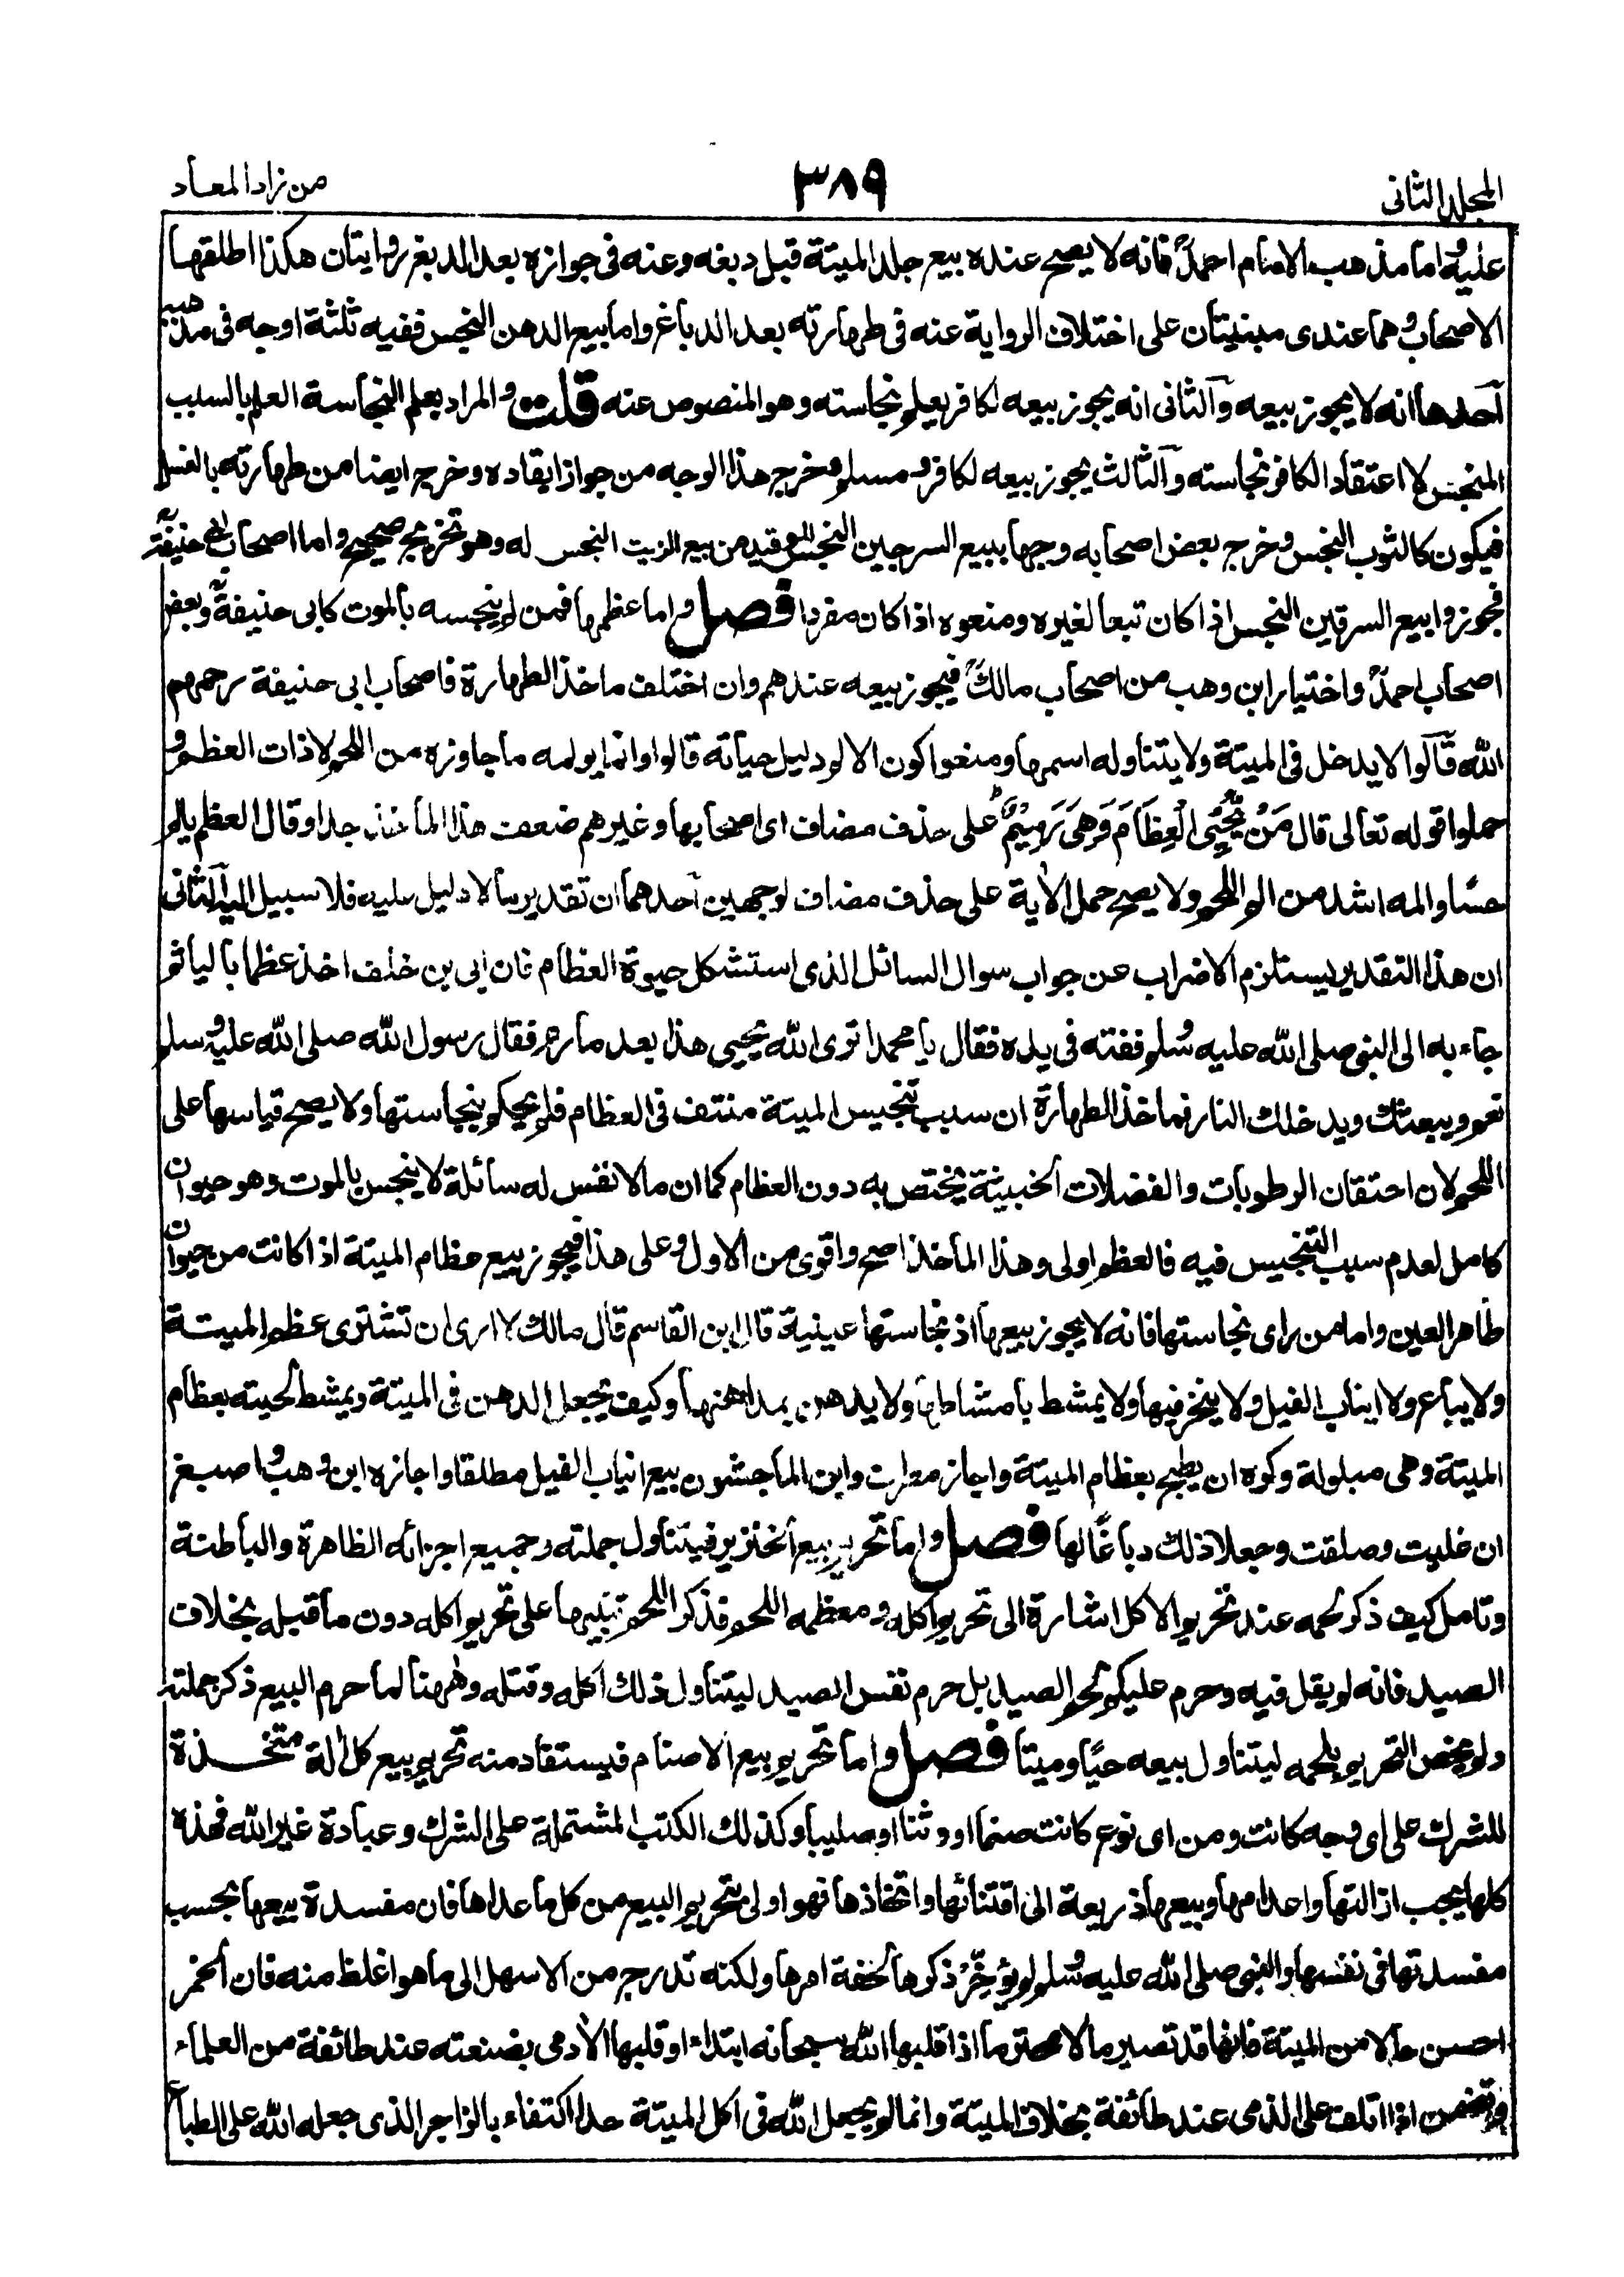 المجلد الثانى
٣٨٩
من زاد المعاد
عليه واما مذهب الامام احمدؒ فانه لا يصح عنده بيع جلد الميتة قبل دبغه وعنه فى جوازه بعد الدبغ روايتان هكذا اطلقها
الاصحاب وهما عندى مبنيتان على اختلاف الرواية عنه فى طهارته بعد الدباغ واما بيع الدهن النجس ففيه ثلثة اوجه فى مذهبه
آحدها انه لا يجوز بيعه وآلثانى انه يجوز بيعه لكافر يعلم نجاسته وهو المنصوص عنه قلت والمراد بعلم النجاسة العلم بالسبب
المنجس لا اعتقاد الكافر نجاسته وآلثالث يجوز بيعه لكافر ومسلم وخرج هذا الوجه من جواز ايقاده وخرج ايضا من طهارته بالغسل
فيكون كالثوب النجس وخرج بعض اصحابه وجها ببيع السرجين النجس للوقيد من بيع الزيت النجس له وهو تخريج صحيح واما اصحاب ابى حنيفةؒ
فجوزوا بيع السرقين النجس اذا كان تبعا لغيره ومنعوه اذا كان مفردا فصل واما عظمها فمن لم ينجسه بالموت كابى حنيفةؒ وبعض
اصحاب احمدؒ واختيار ابن وهب من اصحاب مالكؒ فيجوز بيعه عندهم وان اختلف ماخذ الطهارة فاصحاب ابى حنيفة رحمهم
الله قالوا لا يدخل فى الميتة ولا يتناوله اسمها ومنعوا كون الالم دليل حياته قالوا وانما يولمه ما جاوره من اللحم لا ذات العظم و
حملوا قوله تعالى قال مَنْ يُّحْيِى الْعِظَامَ وَهِىَ رَمِيْمٌ على حذف مضاف اى اصحابها وغيرهم ضعف هذا الماخذ جدا وقال العظم يالم
حسًا والمه اشد من الم اللحم ولا يصح حمل الاٰية على حذف مضاف لوجهين احدهما ان تقدير مالا دليل عليه فلا سبيل اليه آلثانى
ان هذا التقدير يستلزم الاضراب عن جواب سوال السائل الذى استشكل حيوة العظام فان ابى بن خلف اخذ عظما باليا ثم
جاء به الى النبى صلى الله عليه وسلم ففته فى يده فقال يا محمد اترى الله يحيى هذا بعد مارم فقال رسول الله صلى الله عليه وسلم
نعم ويبعثك ويدخلك النار فماخذ الطهارة ان سبب تنجيس الميتة منتف فى العظام فلم يحكم بنجاستها ولا يصح قياسها على
اللحم لان احتقان الرطوبات والفضلات الخبيثة يختص به دون العظام كما ان مالا نفس له سائلة لا ينجس بالموت وهو حيوان
كامل لعدم سبب التنجيس فيه فالعظم اولى وهذا الماخذ اصح واقوى من الاول وعلى هذا فيجوز بيع عظام الميتة اذا كانت من حيوان
طاهر العين واما من راى نجاستها فانه لا يجوز بيعها اذ نجاستها عينية قال ابن القاسم قال مالك لا ارى ان تشترى عظم الميتة
ولا يباع ولا انياب الفيل ولا يتجر فيها ولا يمشط بامشاطها ولا يدهن بمداهنها وكيف يجعل الدهن فى الميتة ويمشط لحيته بعظام
الميتة وهى مبلولة وكره ان يطبخ بعظام الميتة واجاز مطرف وابن الماجشون بيع انياب الفيل مطلقا واجازه ابن وهب واصبغ
ان غليت وصلقت وجعلا ذلك دباغًا لها فصل واما تحريم بيع الخنزير فيتناول جملته وجميع اجزائه الظاهرة والباطنة
وتامل كيف ذكر لحمه عند تحريم الاكل اشارة الى تحريم اكله ومعظمه اللحم فذكر اللحم تنبيها على تحريم اكله دون ما قبله بخلاف
الصيد فانه لم يقل فيه وحرم عليكم لحم الصيد بل حرم نفس الصيد ليتناول ذلك اكله وقتله وههنا لما حرم البيع ذكر جملته
ولم يخص التحريم بلحمه ليتناول بيعه حيًا وميتا فصل واما تحريم بيع الاصنام فيستفاد منه تحريم بيع كل اٰلة متخذة
للشرك على اى وجه كانت ومن اى نوع كانت صنما او وثنا او صليبا وكذلك الكتب المشتملة على الشرك وعبادة غير الله فهذه
كلها يجب ازالتها واعدامها وبيعها ذريعة الى اقتنائها واتخاذها فهو اولى بتحريم البيع من كل ما عداها فان مفسدة بيعها بحسب
مفسدتها فى نفسها والنبى صلى الله عليه وسلم لم يؤخِّرْ ذكرها لخفة امرها ولكنه تدرج من الاسهل الى ما هو اغلظ منه فان الخمر
احسن حالا من الميتة فانها قد تصير مالا محترما اذا قلبها الله سبحانه ابتداء او قلبها الاٰدمى بصنعته عند طائفة من العلماء
وتضمن اذا اتلفت على الذمى عند طائفة بخلاف الميتة وانما لم يجعل الله فى اكل الميتة حدا اكتفاء بالزاجر الذى جعله الله على الطباع